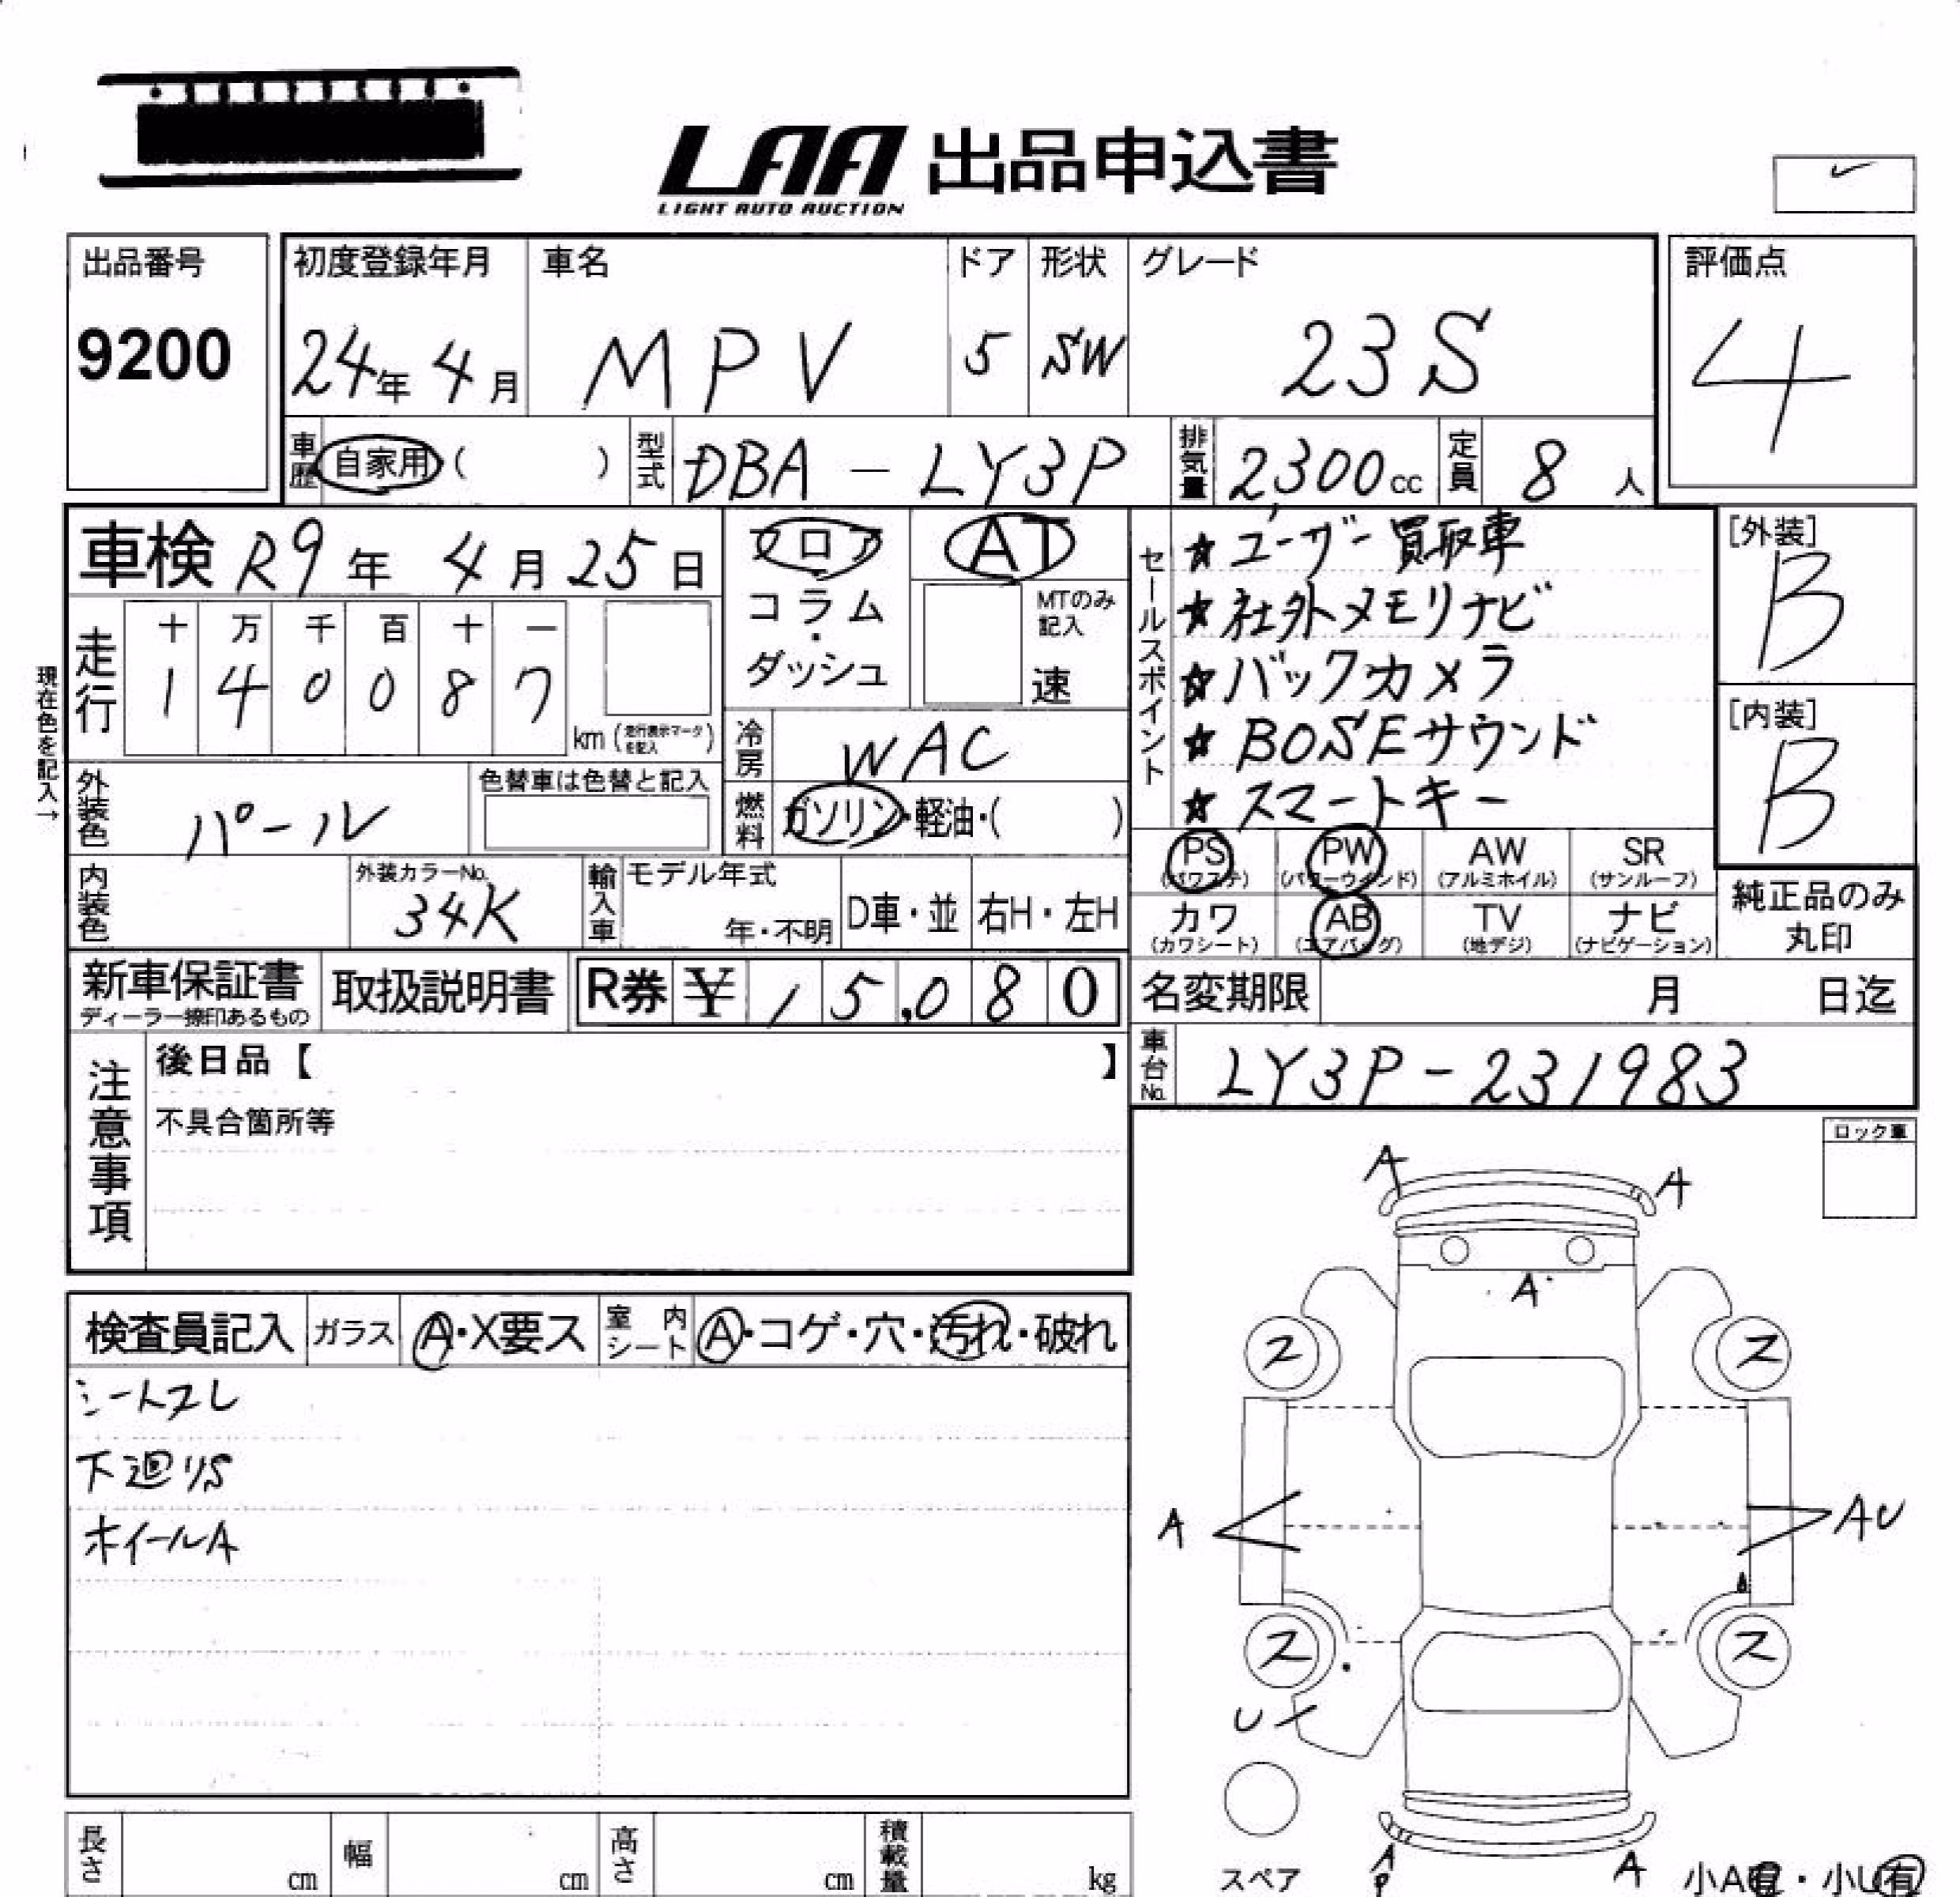 LAA 出品申込書
LIGHT AUTO AUCTION
出品番号
9200
初度登録年月
24年 4月
車名
MPV
ドア
5
形状
SW
グレード
23S
評価点
4
車歴 自家用 ( )
型式 DBA-LY3P
排気量 2300cc
定員 8人
車検 R9年 4月25日
フロア
コラム
・
ダッシュ
AT
MTのみ記入
速
セールスポイント
☆ユーザー買取車
☆社外メモリナビ
☆バックカメラ
☆BOSEサウンド
☆スマートキー
[外装]
B
[内装]
B
現在色を記入→
走行
十 万 千 百 十 一
1 4 0 0 8 7
km (走行表示マークを記入)
冷房 WAC
燃料 ガソリン・軽油・( )
外装色 パール
色替車は色替と記入
内装色
外装カラーNo.
34K
輸入車
モデル年式
年・不明
D車・並
右H・左H
PS (パワステ)
PW (パワーウインド)
AW (アルミホイル)
SR (サンルーフ)
カワ (カワシート)
AB (エアバッグ)
TV (地デジ)
ナビ (ナビゲーション)
純正品のみ
丸印
新車保証書
ディーラー捺印あるもの
取扱説明書
R券 ¥ 15,080
名変期限 月 日迄
車台No. LY3P-231983
注意事項
後日品【 】
不具合箇所等
ロック車
検査員記入 ガラス A・X要ス 室内シート A・コゲ・穴・汚れ・破れ
シートスレ
下廻りS
ホイールA
A
A
A
ス
ス
A
AU
A
ス
ス
U
スペア
A
P
A
小A有・小U有
長さ cm
幅 cm
高さ cm
積載量 kg